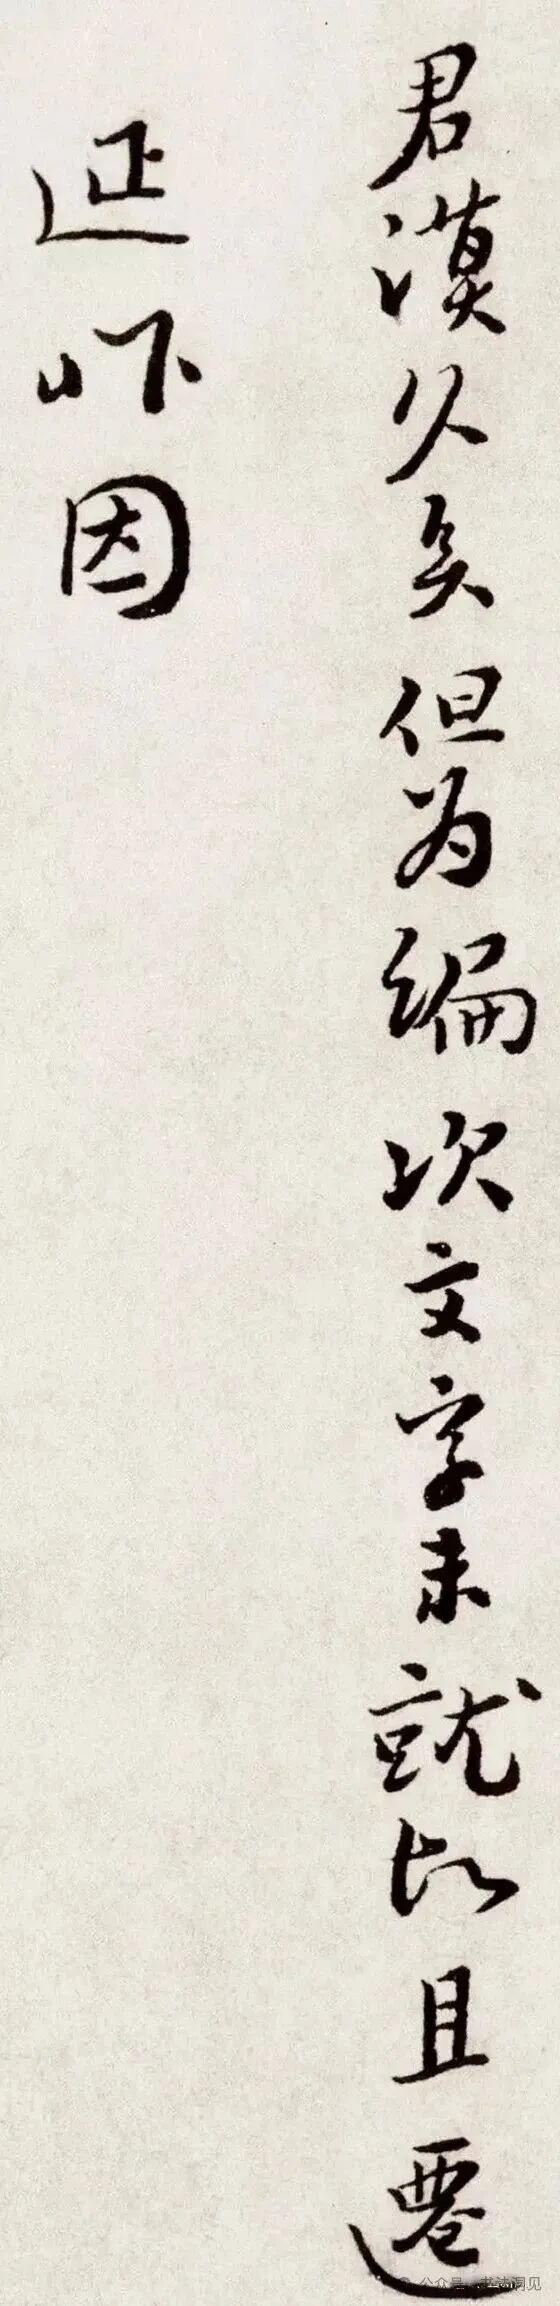 君謨久矣但为編次文字未就以且遷
延因
公众号·书法洞见